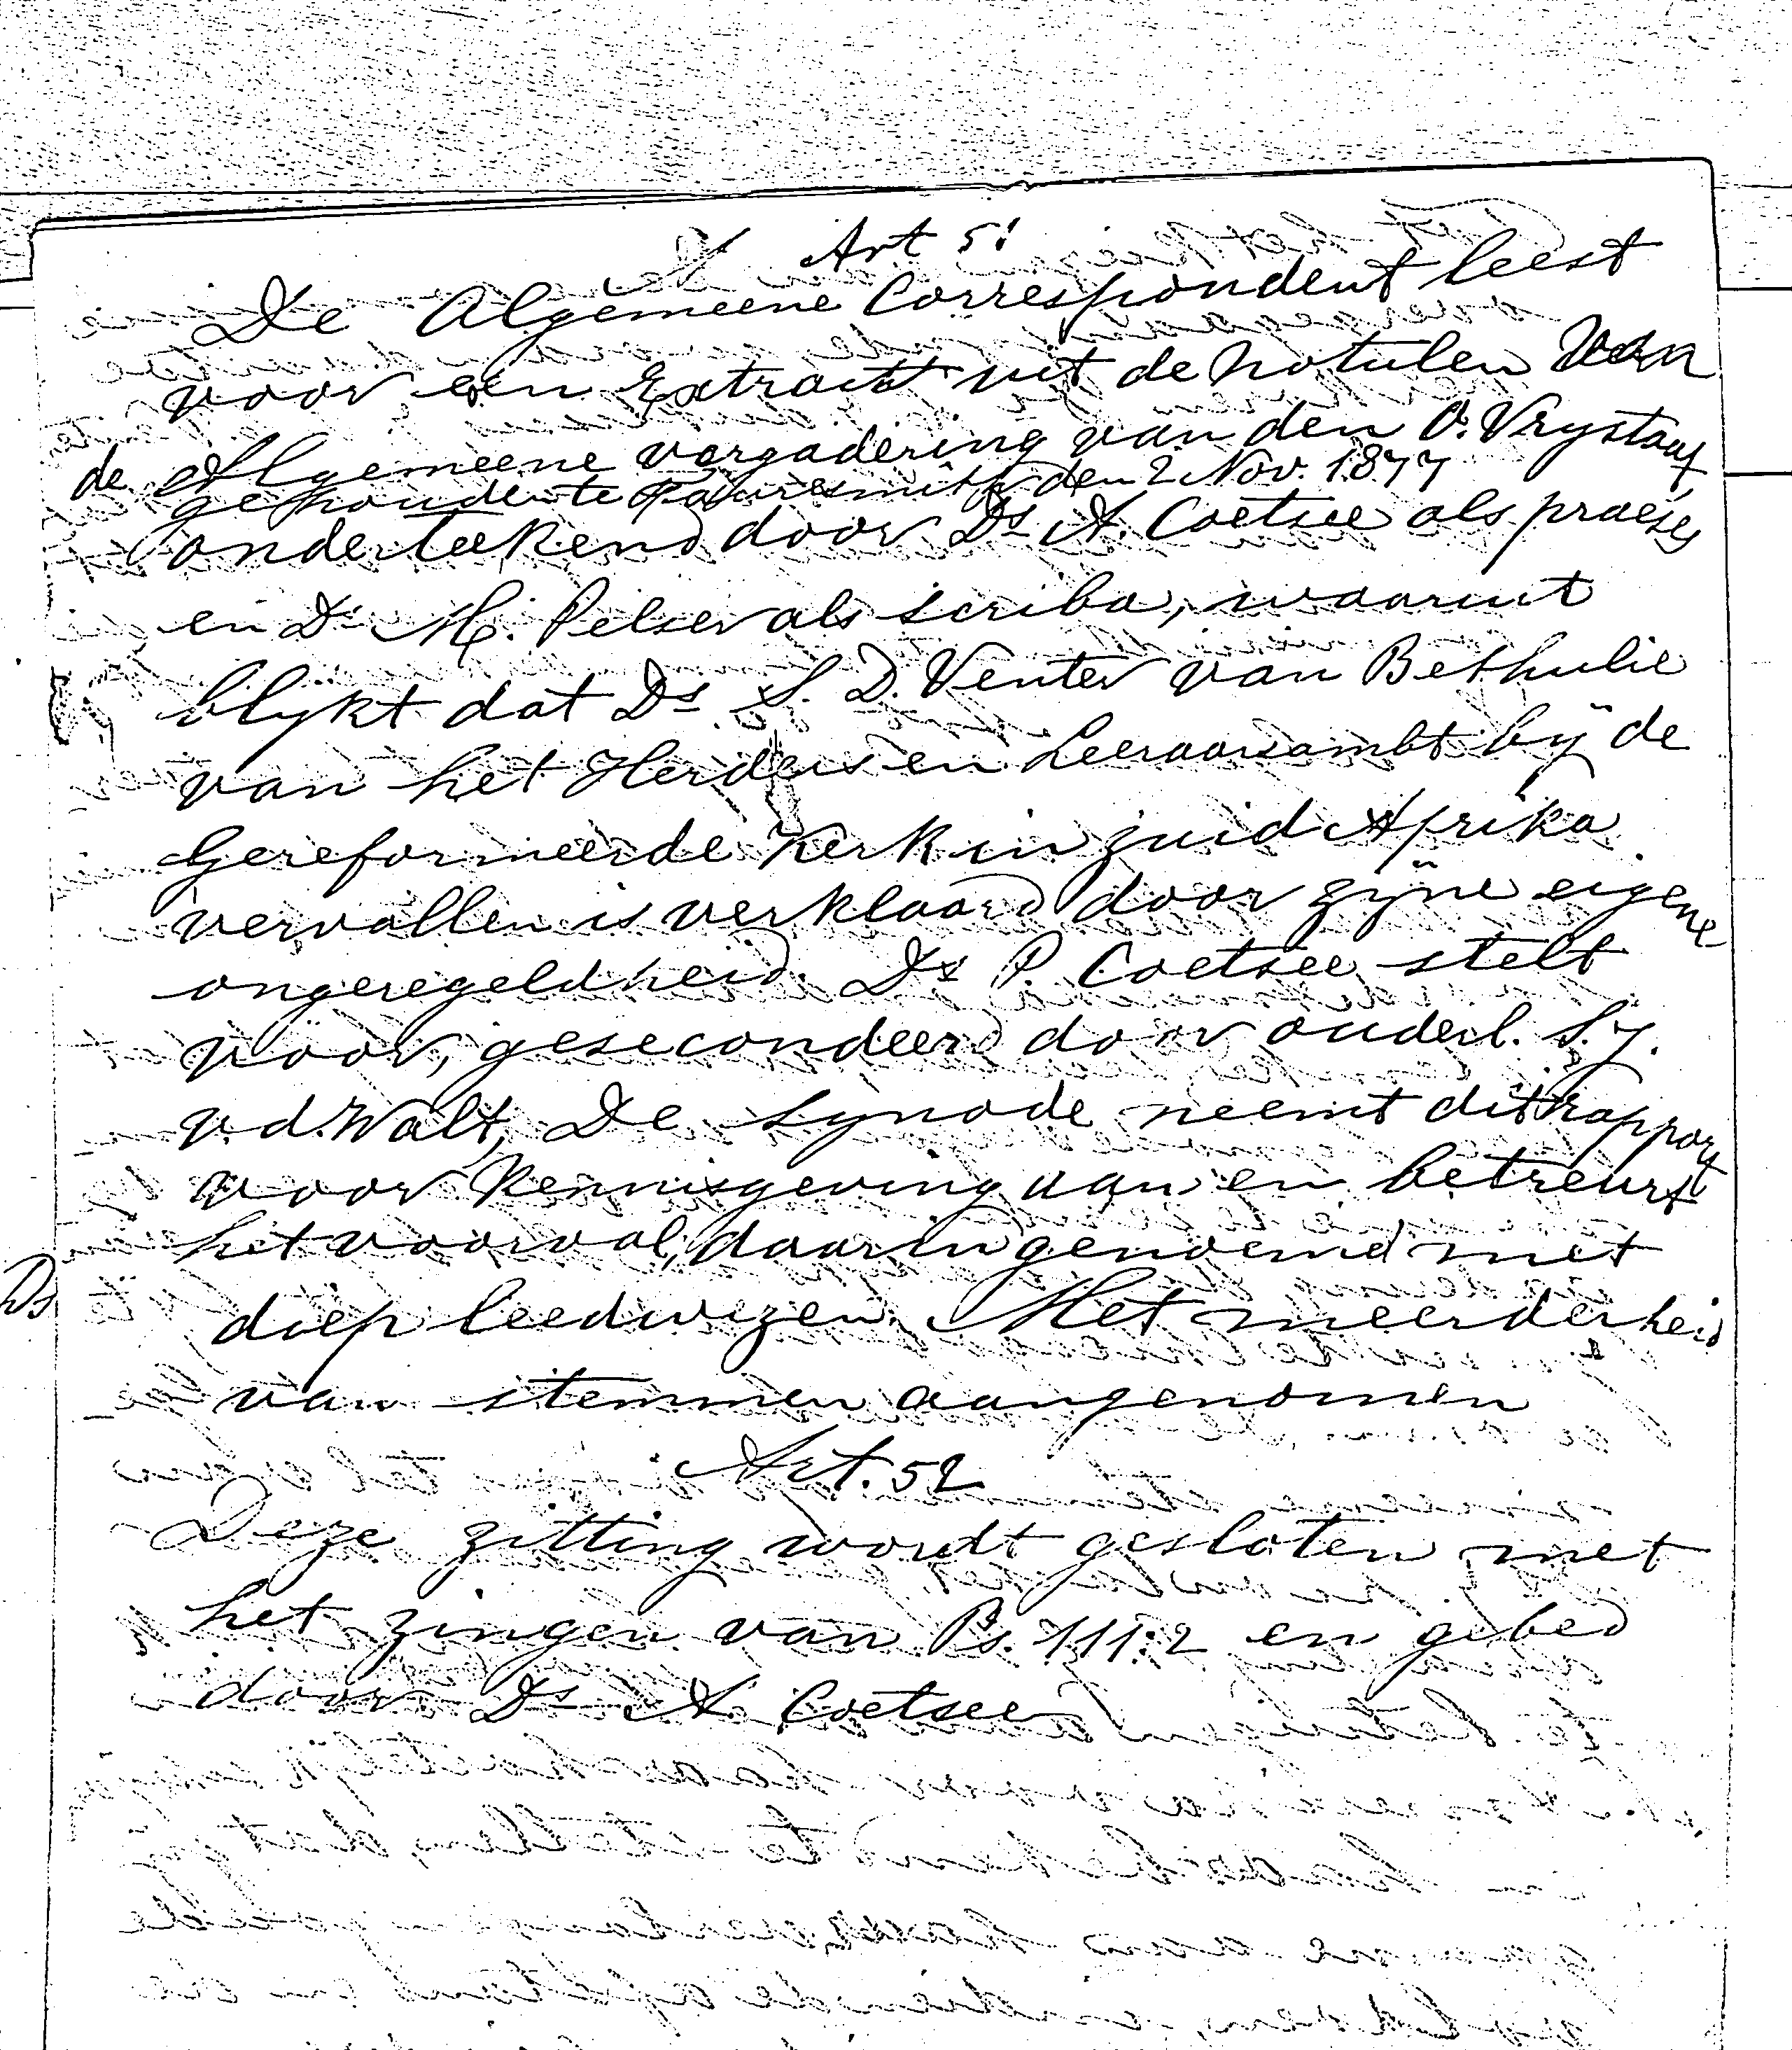 Art 51
De Algemeene Correspondent leest
voor een Extract uit de Notulen van
de Algemeene vergadering van den O. Vrystaat,
gehouden te Fauresmith den 2 Nov. 1877
onderteekend door Ds A. Coetsee als praeses
en Ds M. Pelser als scriba, waaruit
blykt dat Ds S. D. Venter van Bethulie
van het Herders en Leeraarsambt bÿ de
Gereformeerde Kerk in Zuid Afrika
vervallen is verklaard door zÿne eigene
ongeregeldheid. Ds P. Coetsee stelt
voor, gesecondeerd door ouderl. S. J.
v. d. Walt, De Synode neemt dit rapport
voor kennisgeving aan en betreurt
het voorval, daarin genoemd met
diep leedwezen. Met meerderheid
van stemmen aangenomen
Art. 52
Deze zitting wordt gesloten met
het zingen van Ps. 111:2 en gebed
door Ds A. Coetsee